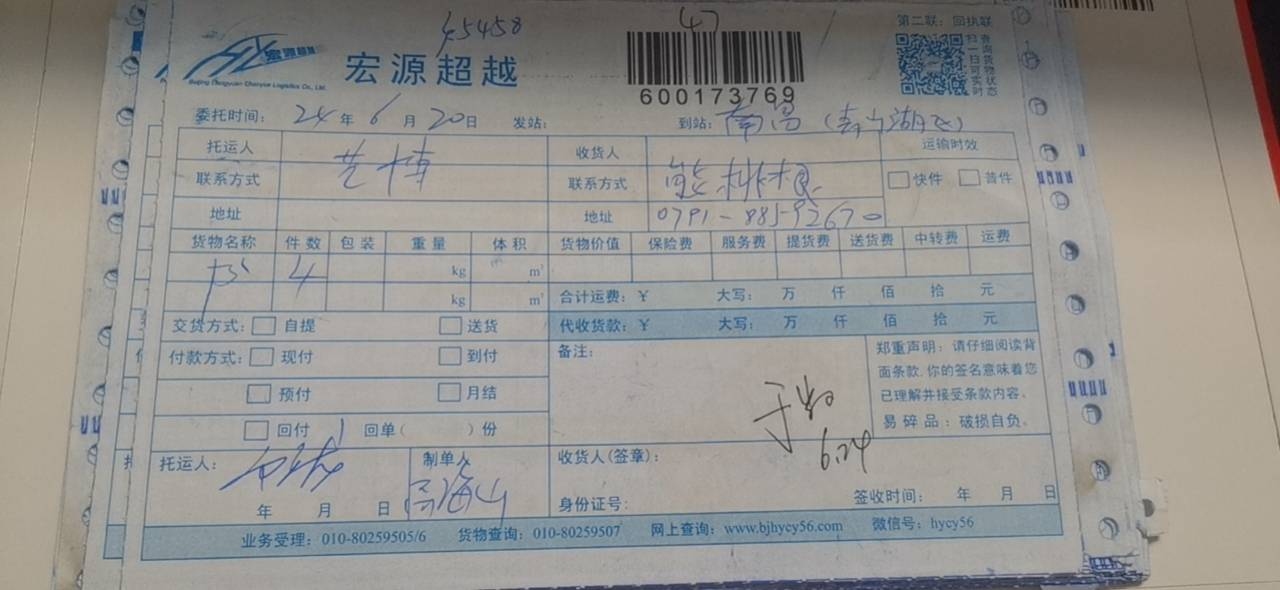 45458
47
第二联：回执联
宏源超越
宏源超越
Beijing Hongyuan Chaoyue Logistics Co., Ltd.
600173769
扫一扫可实时
查询货物状态
委托时间： 24年 6月 20日 发站： 到站： 南昌（青山湖区）
托运人 收货人 运输时效
联系方式 艺博 联系方式 快件 普件
地址 地址
货物名称 件数 包装 重量 体积 货物价值 保险费 服务费 提货费 送货费 中转费 运费
书 4 kg m³
kg m³ 合计运费：￥ 大写： 万 仟 佰 拾 元
交货方式： 自提 送货 代收货款：￥ 大写： 万 仟 佰 拾 元
付款方式： 现付 到付 备注：
郑重声明：请仔细阅读背
面条款，你的签名意味着您
已理解并接受条款内容。
易碎品：破损自负。
预付 月结
回付 回单（ ）份
6.24
托运人： 制单人 收货人(签章)：
年 月 日 身份证号： 签收时间： 年 月 日
业务受理：010-80259505/6 货物查询：010-80259507 网上查询：www.bjhycy56.com 微信号：hycy56